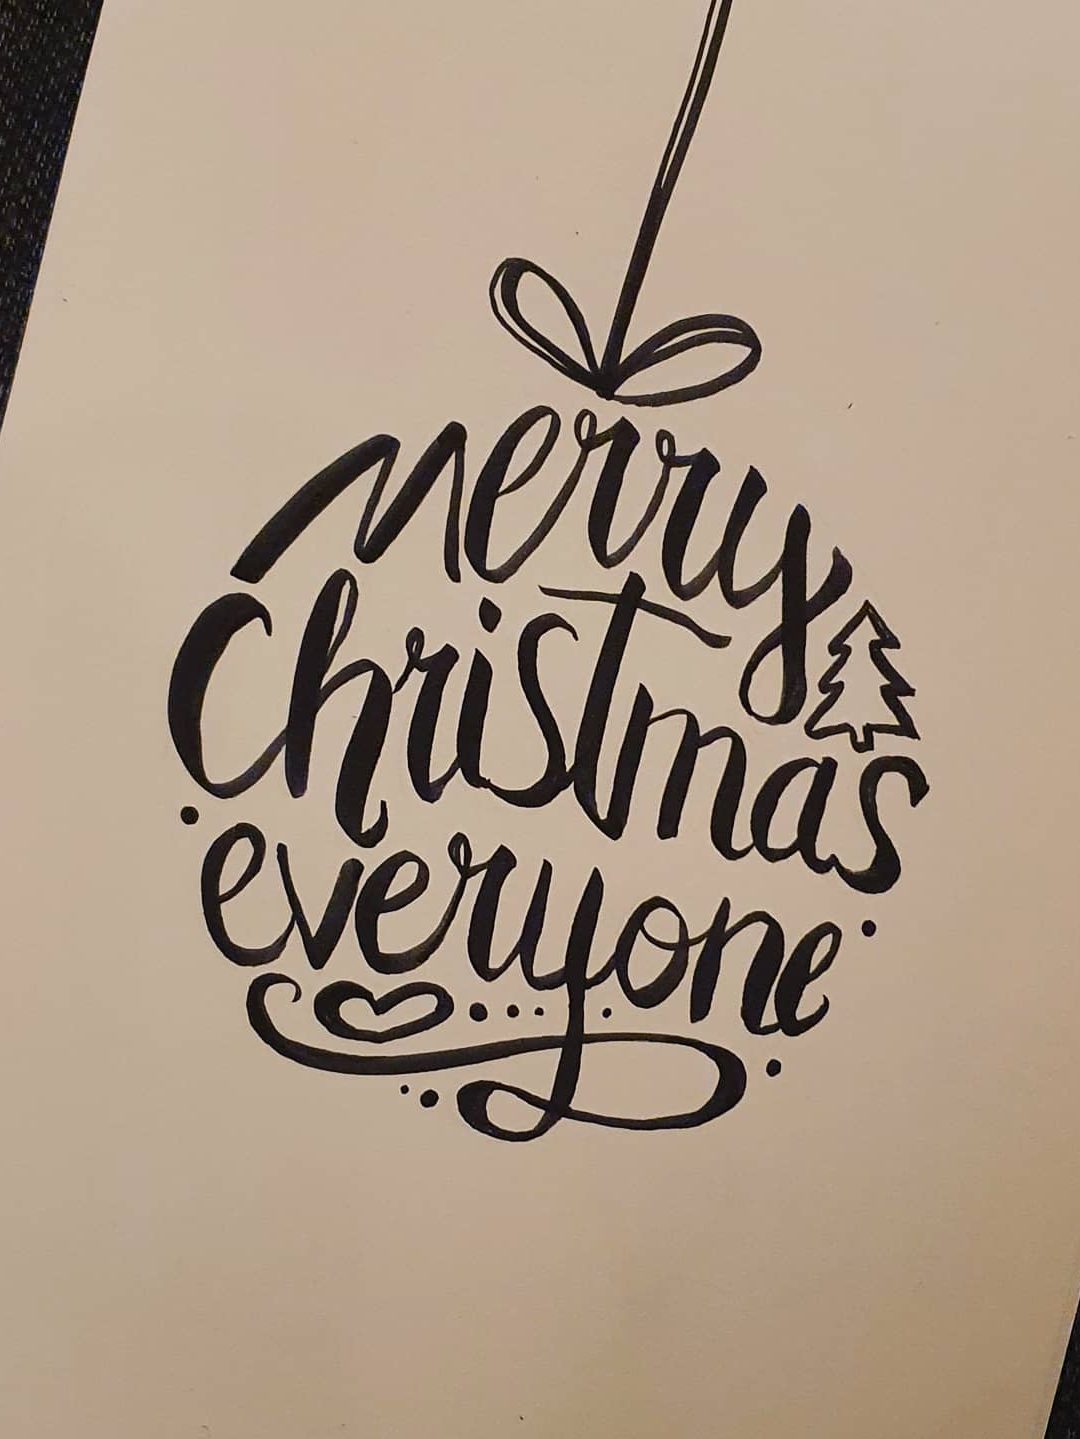 merry
Christmas
everyone